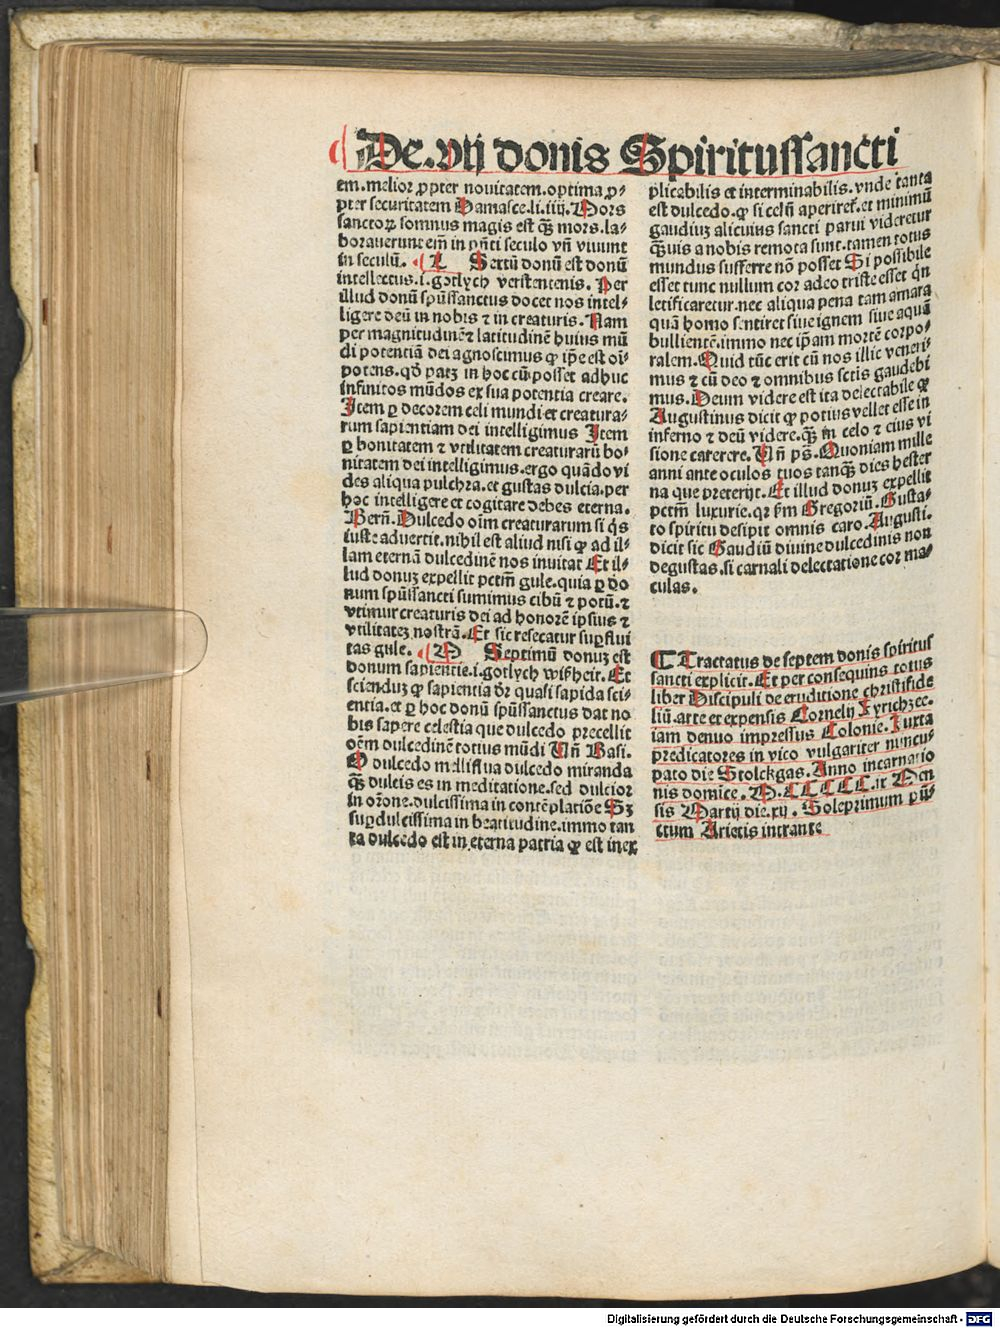 De .vij donis Spiritussancti
em. melior ꝓpter nouitatem. optima ꝓ⸗
pter securitatem Damasce. li. iiij. Mors
sanctoꝝ somnus magis est qȝ mors. la⸗
borauerunt em̄ in pn̄ti seculo vn̄ viuunt
in seculū. L Sextū donū est donū
intellectus. i. gotlych verstentenis. Per
illud donū spūssanctus docet nos intel⸗
ligere deū in nobis ⁊ in creaturis. Nam
per magnitudinē ⁊ latitudinē huius mū
di potentiā dei agnoscimus ꝙ ip̄e est oī⸗
potens. qd̄ patȝ in hoc cū posset adhuc
infinitos mūdos ex sua potentia creare.
Item ꝑ decorem celi mundi et creatura⸗
rum sapientiam dei intelligimus Item
ꝑ bonitatem ⁊ vtilitatem creaturarū bo⸗
nitatem dei intelligimus. ergo quādo vi
des aliqua pulchra. et gustas dulcia. per
hoc intelligere et cogitare debes eterna.
Bern̄. Dulcedo oīm creaturarum si q̇s
iuste aduertit. nihil est aliud nisi ꝙ ad il⸗
lam eternā dulcedinē nos inuitat Et il⸗
lud donuȝ expellit pctm̄ gule. quia ꝑ do
num spūssancti sumimus cibū ⁊ potū. ⁊
vtimur creaturis dei ad honorē ipsius ⁊
vtilitateȝ nostrā. Et sic resecatur suꝑflui
tas gule. M Septimū donuȝ est
donum sapientie. i. gotlych wißheit. Et
scienduȝ ꝙ sapientia dr̄ quasi sapida sci⸗
entia. et ꝑ hoc donū spūssanctus dat no
bis sapere celestia que dulcedo precellit
oēm dulcedinē totius mūdi Vn̄ Basi.
O dulcedo melliflua dulcedo miranda
qȝ dulcis es in meditatione. sed dulcior
in orōne. dulcissima in contēplatiōe Sȝ
suꝑdulcissima in beatitudine. immo tan
ta dulcedo est in eterna patria ꝙ est inex
plicabilis et interminabilis. vnde tanta
est dulcedo. ꝙ si celū aperiret̄. et minimū
gaudiuȝ alicuius sancti parui videretur
qȝuis a nobis remota sunt. tamen totus
mundus sufferre nō posset Si possibile
esset tunc nullum cor adeo triste esset qn̄
letificaretur. nec aliqua pena tam amara
quā homo sentiret siue ignem siue aquā
bullientē. immo nec ip̄am mortē corpo⸗
ralem. Quid tūc erit cū nos illic veneri⸗
mus ⁊ cū deo ⁊ omnibus sctīs gaudebi
mus. Deum videre est ita delectabile ꝙ
Augustinus dicit ꝙ potius vellet esse in
inferno ⁊ deū videre. qȝ in celo ⁊ eius vi
sione carerere. Vn̄ ps̄. Quoniam mille
anni ante oculos tuos tanqȝ dies hester
na que preterijt. Et illud donuȝ expellit
pctm̄ luxurie. qꝛ ẜm Gregoriū. Gusta⸗
to spiritu desipit omnis caro. Augusti.
dicit sic Gaudiū diuine dulcedinis non
degustas. si carnali delectatione cor ma⸗
culas.
Tractatus de septem donis spiritus
sancti explicit. Et per consequins totus
liber Discipuli de eruditione christifide
liū. arte et expensis Cornelij Zyrichzee.
iam denuo impressus Colonie. Iuxta
predicatores in vico vulgariter nuncu⸗
pato die Stolckgas. Anno incarnatio
nis domīce. M. CCCCC. ix Men
sis Martij die. xij. Sole primum pū⸗
ctum Arietis intrante
Digitalisierung gefördert durch die Deutsche Forschungsgemeinschaft - DFG